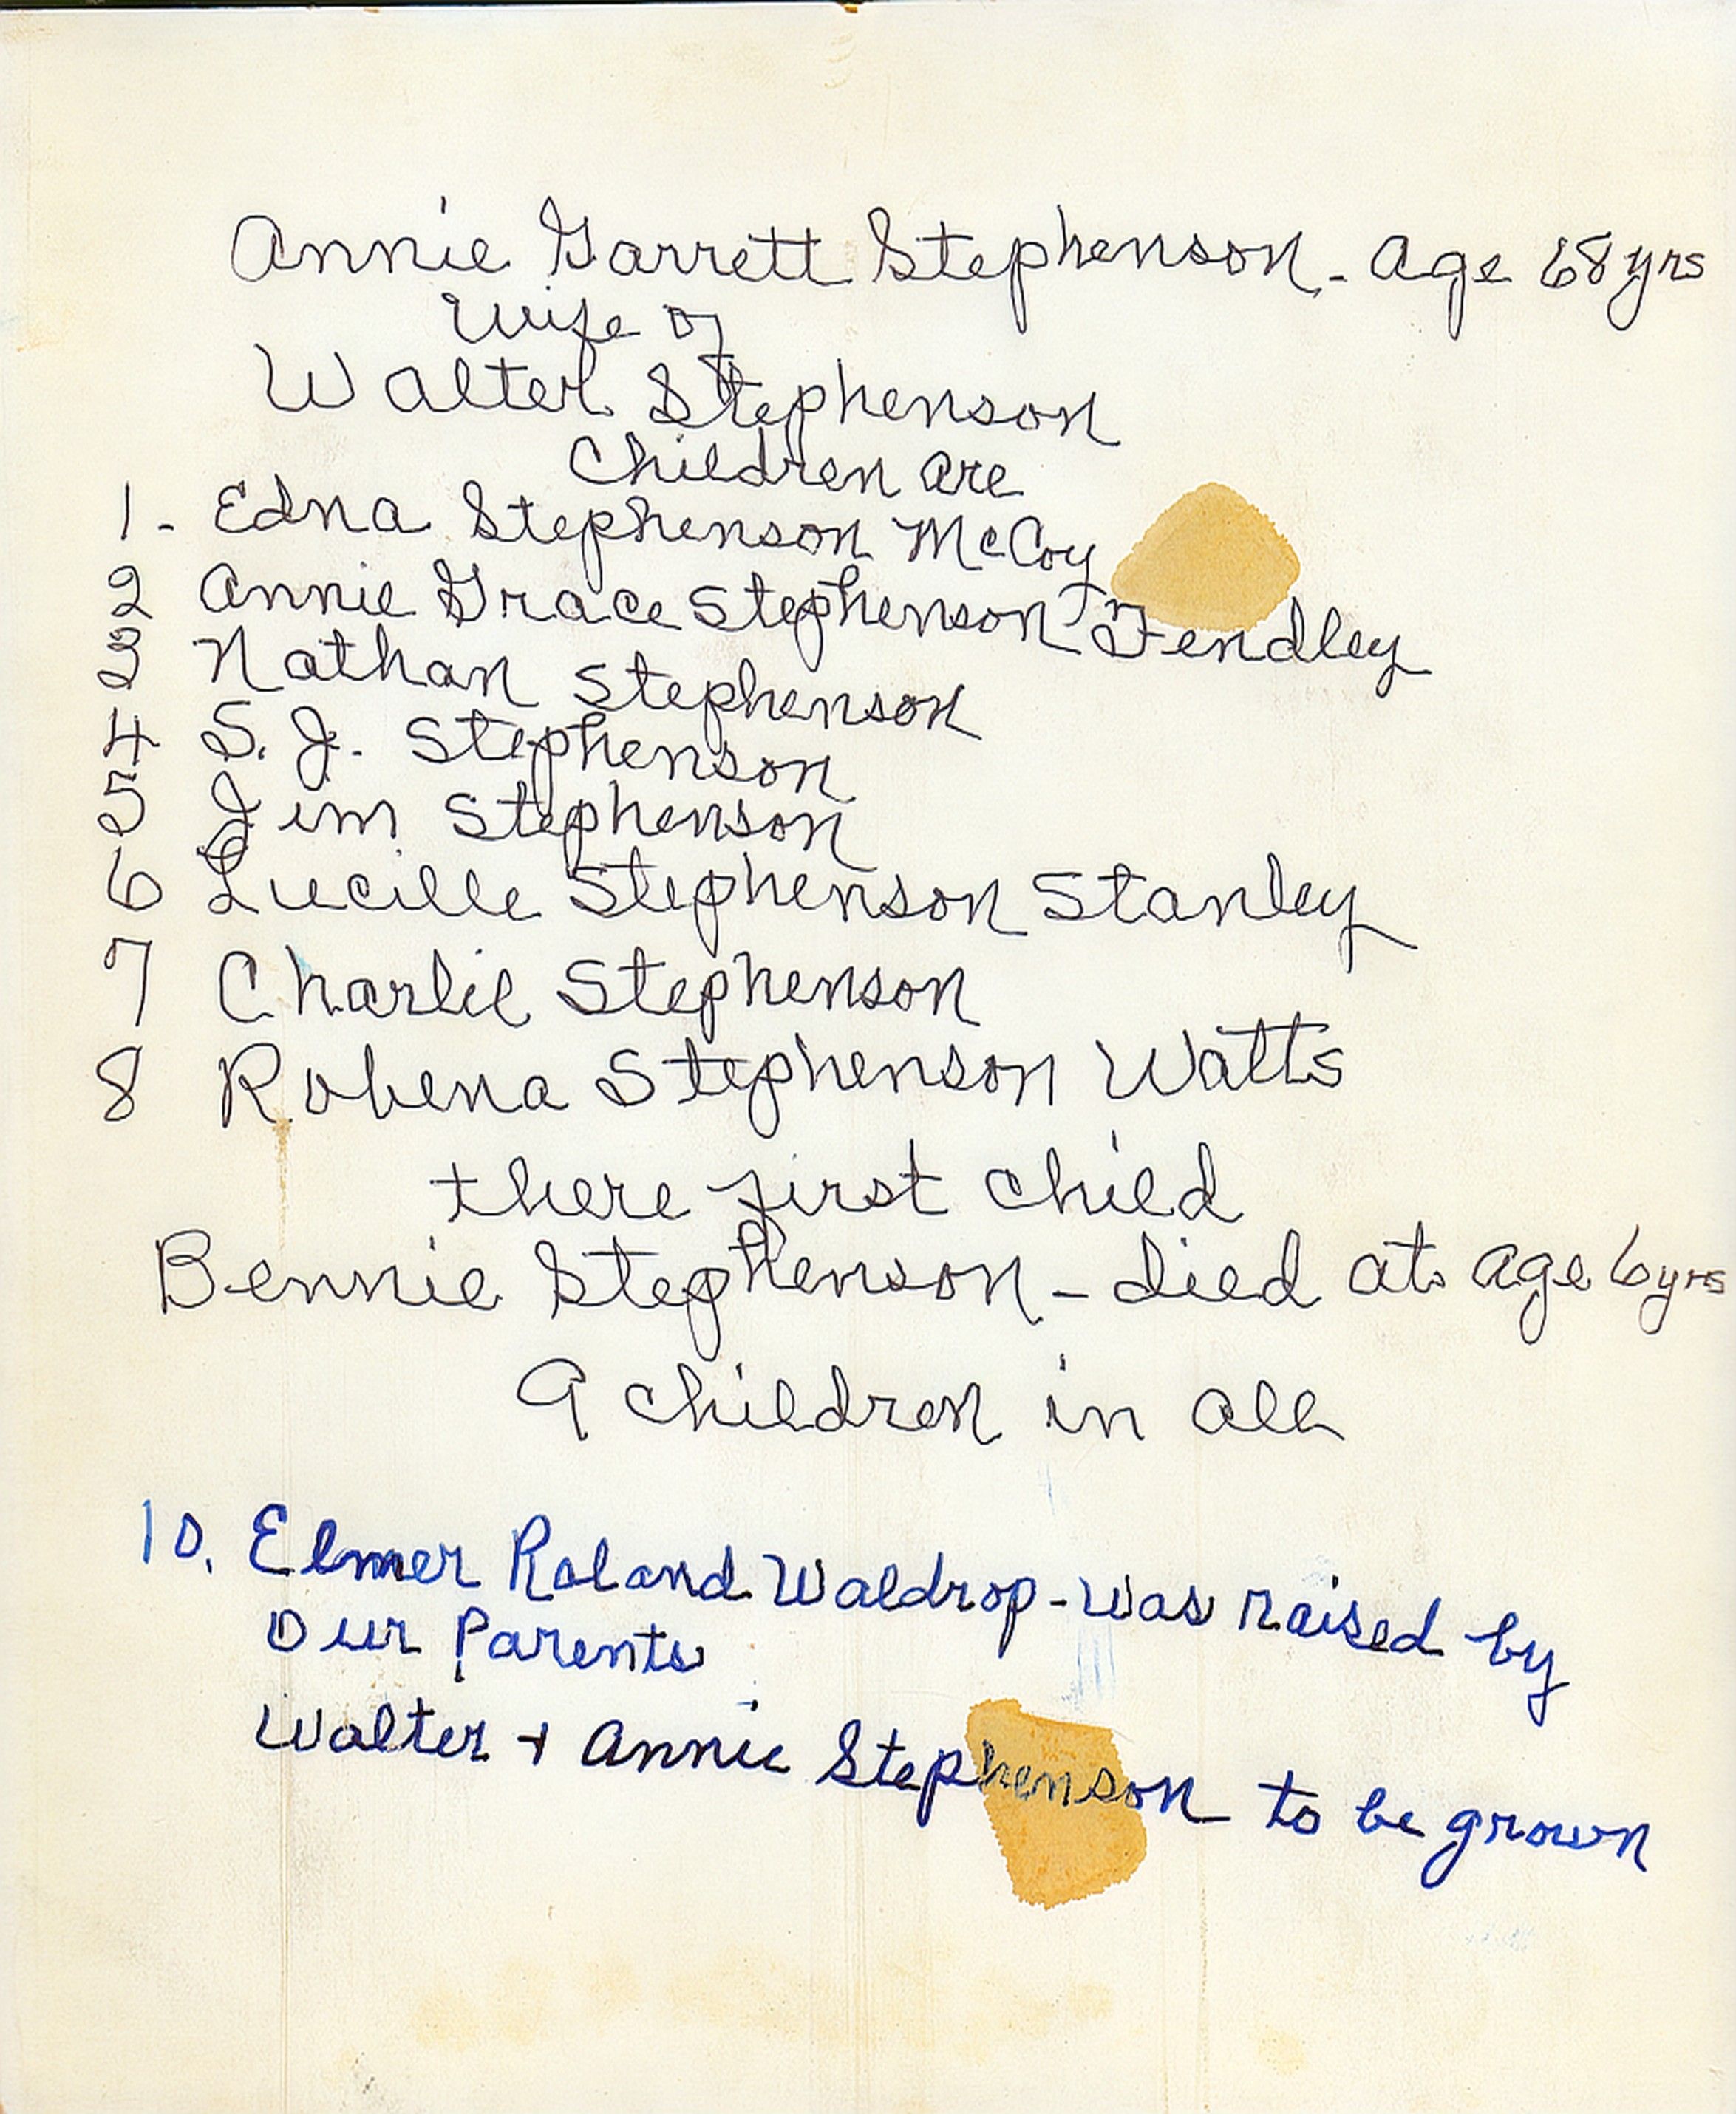 Annie Garrett Stephenson - age 68 yrs
Wife of
Walter Stephenson
Children are
1 - Edna Stephenson McCoy
2 Annie Grace Stephenson Fendley
3 Nathan Stephenson
4 S. J. Stephenson
5 Jim Stephenson
6 Lucille Stephenson Stanley
7 Charlie Stephenson
8 Robena Stephenson Watts
there first child
Bennie Stephenson - died at age 6 yrs
9 children in all
10. Elmer Roland Waldrop - was raised by
Our Parents
Walter + Annie Stephenson to be grown